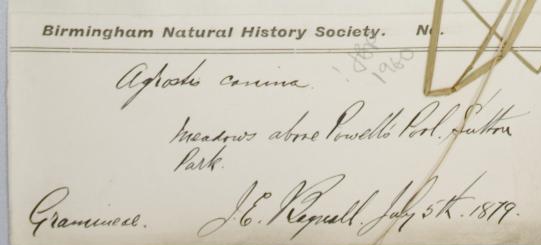 Birmingham Natural History Society. No.
! JBH
1960
Agrostis canina.
Meadows above Powell's Pool, Sutton
Park.
Gramineae. J. E. Bagnall. July 5th. 1879.